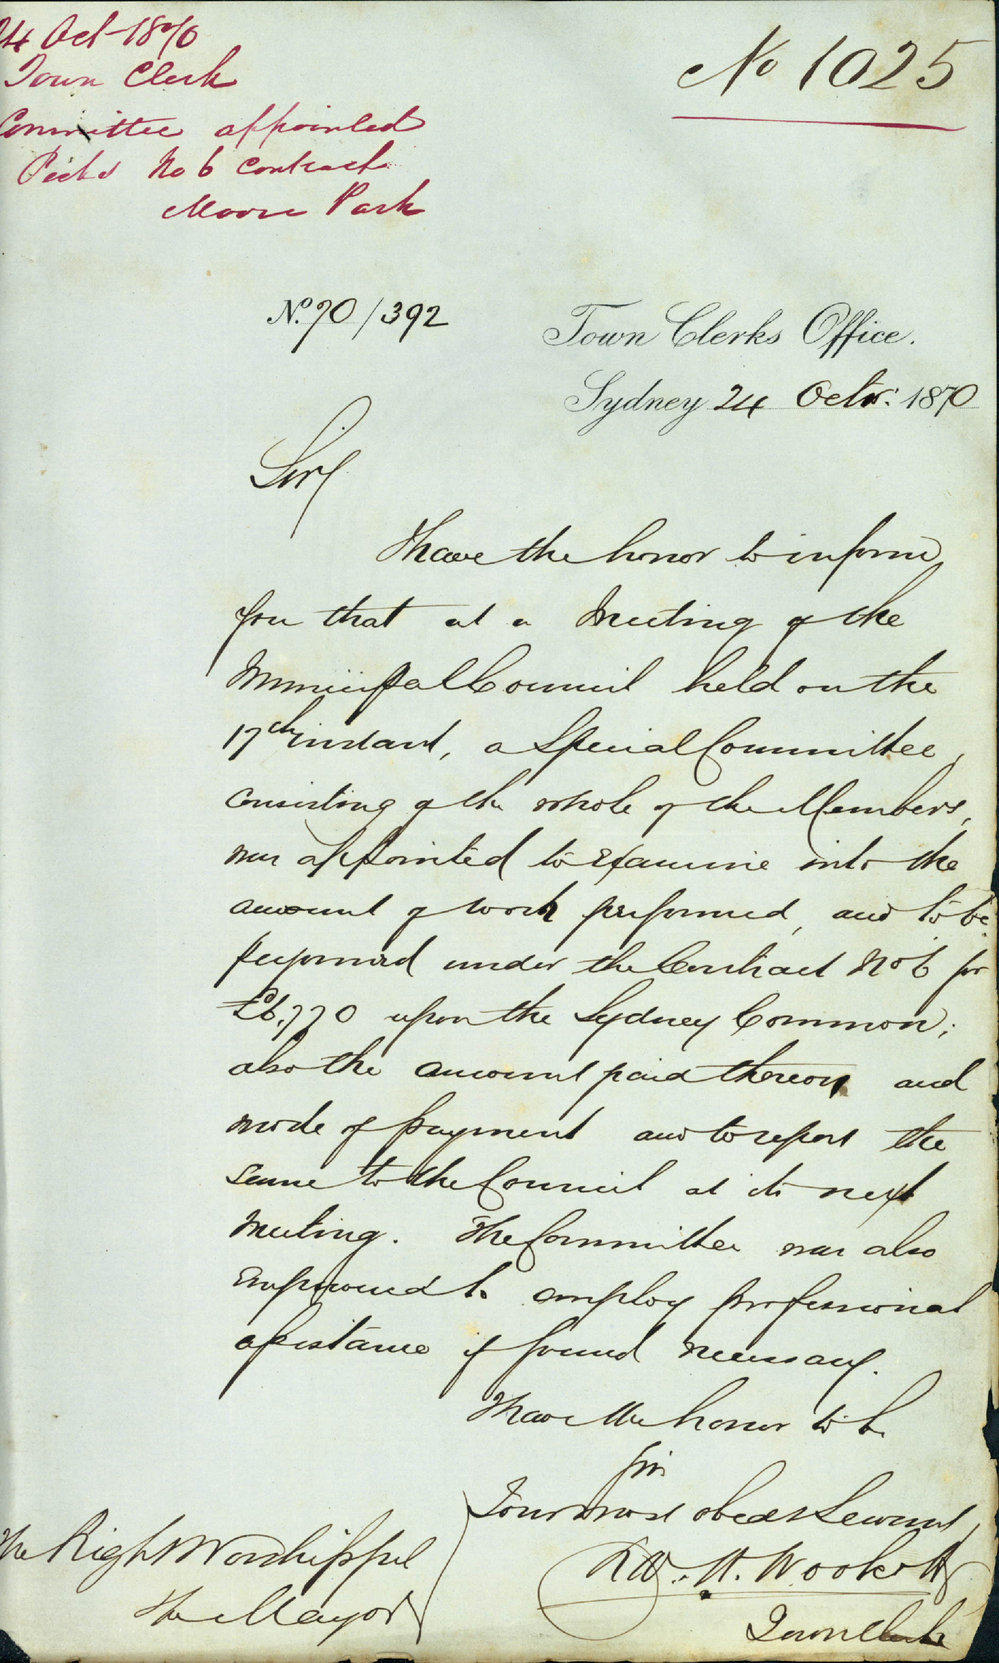 24 Oct 1870
Town Clerk
Committee appointed
No 6 Contract
Moore Park
No 1025
No. 70/392
Town Clerks Office.
Sydney 24 Octr: 1870
Sir,
I have the honor to inform
you that at a Meeting of the
Municipal Council held on the
17th instant, a Special Committee,
consisting of the whole of the Members,
was appointed to examine into the
amount of work performed, and to be
performed under the Contract No 6 for
£6,770 upon the Sydney Common;
also the amount paid thereon and
mode of payment and to report the
same to the Council at its next
Meeting. The Committee was also
empowered to employ professional
assistance if found necessary.
I have the honor to be
Sir
Your most obedt Servant,
Town Clerk
The Right Worshipful
The Mayor